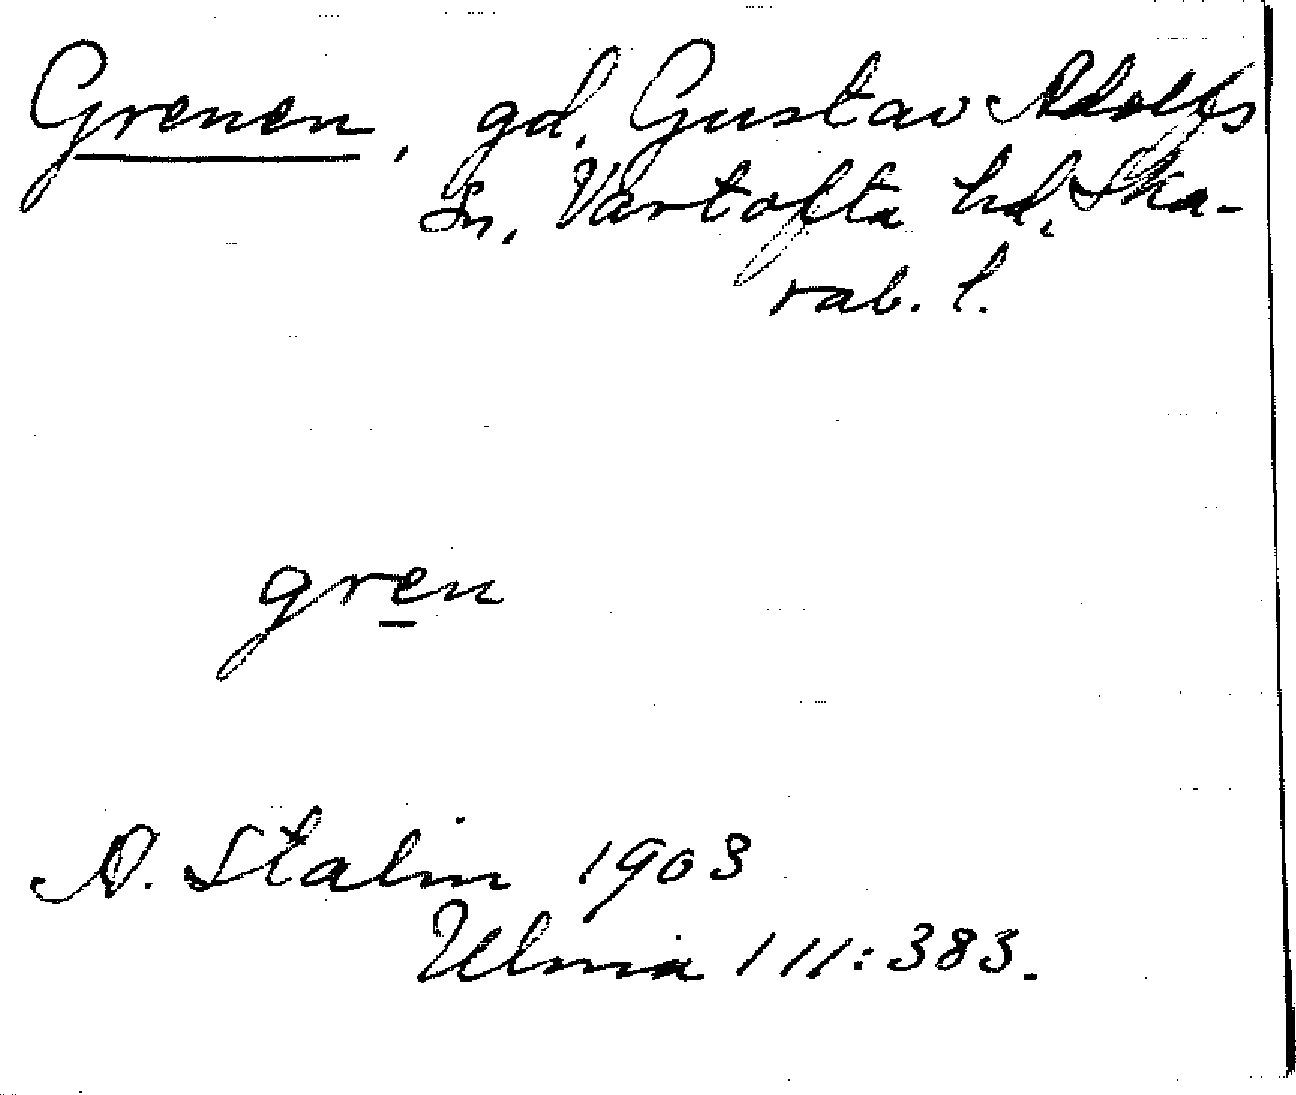 Grenen, gd. Gustav Adolfs
sn, Vartofta hd, Ska-
rab. l.
gren
A. Stalin 1903
Ulmia 111:383.